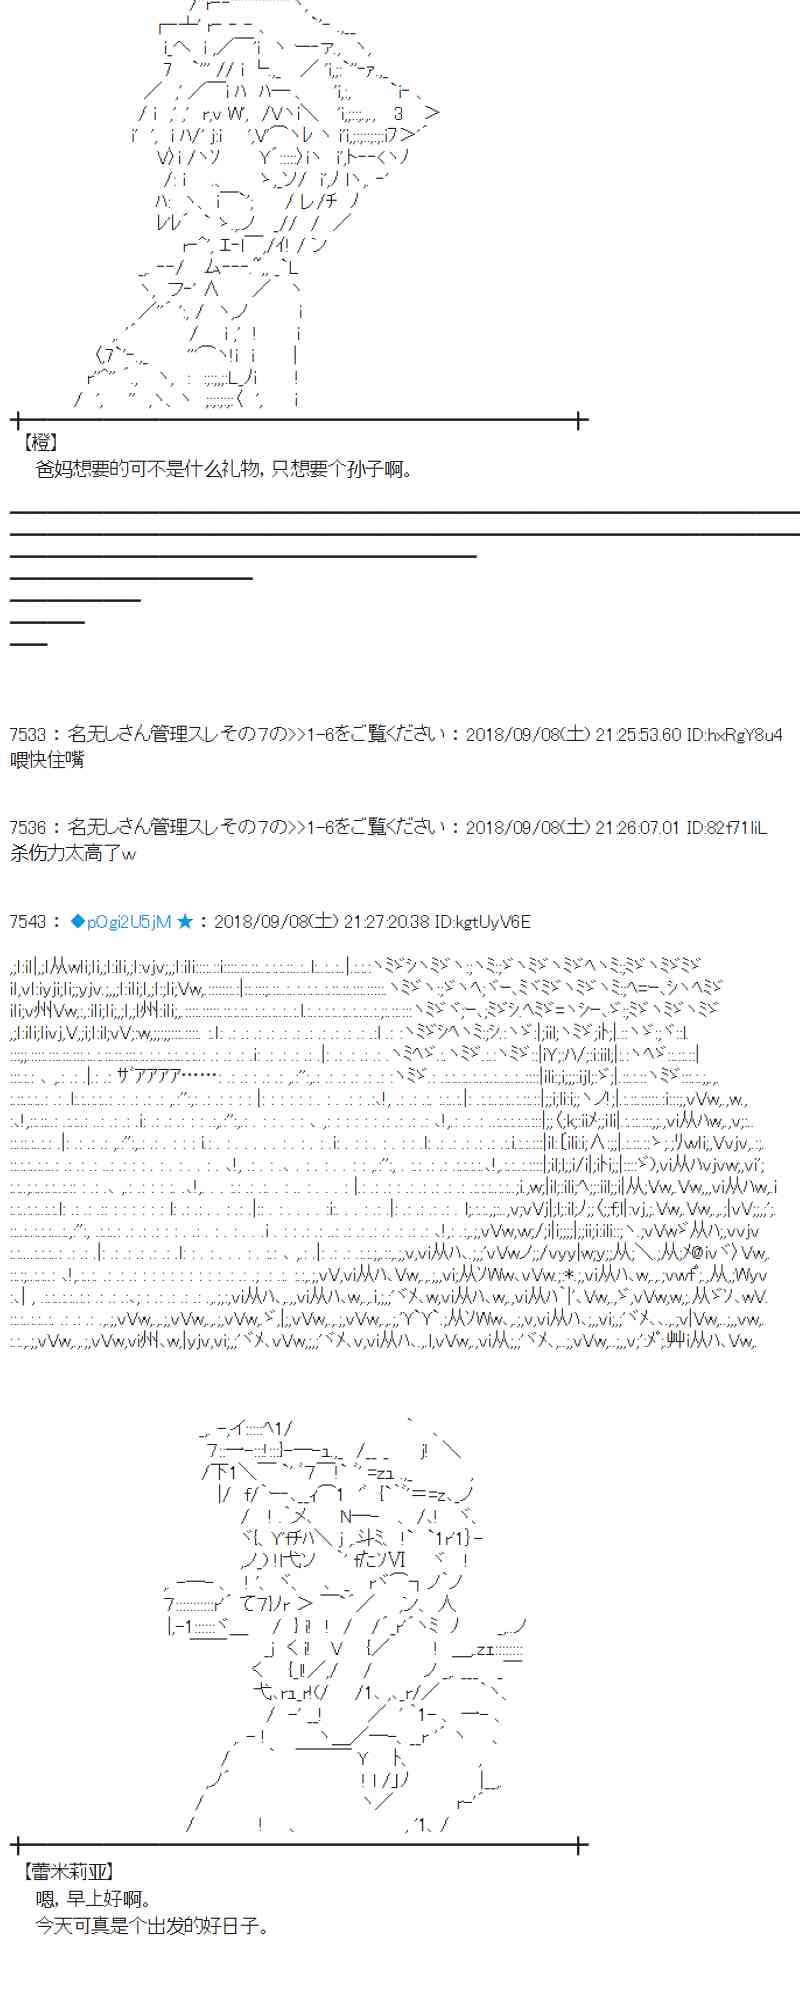 【橙】
爸妈想要的可不是什么礼物，只想要个孙子啊。
7533 ： 名无しさん管理スレその7の>>1-6をご覧ください ： 2018/09/08(土) 21:25:53.60 ID:hxRgY8u4
喂快住嘴
7536 ： 名无しさん管理スレその7の>>1-6をご覧ください ： 2018/09/08(土) 21:26:07.01 ID:82f71IiL
杀伤力太高了w
7543 ： ◆pOgi2U5jM ★ ： 2018/09/08(土) 21:27:20.38 ID:kgtUyV6E
ザァアアア……
【蕾米莉亚】
嗯，早上好啊。
今天可真是个出发的好日子。